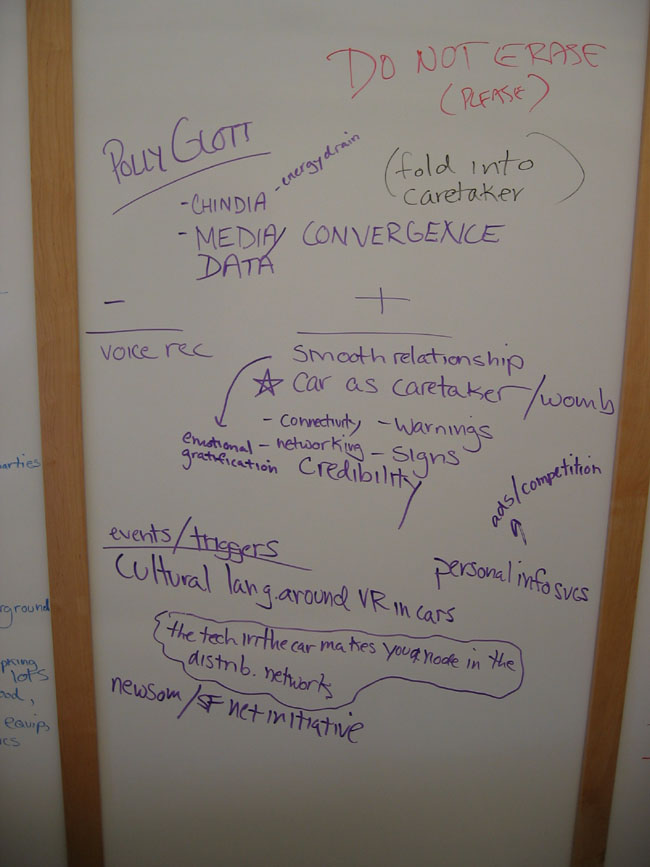 DO NOT ERASE
(PLEASE)
POLLY GLOTT
- CHINDIA - energy drain
(fold into
caretaker)
- MEDIA/ CONVERGENCE
DATA
- +
voice rec
smooth relationship
☆ car as caretaker/womb
- connectivity - Warnings
emotional - networking - Signs
gratification Credibility
ads/competition
events/triggers
personal info svcs
Cultural lang. around VR in cars
the tech in the car makes you a node in the
distrib. networks
newsom/SF net initiative
arties
rground
lots
equip,